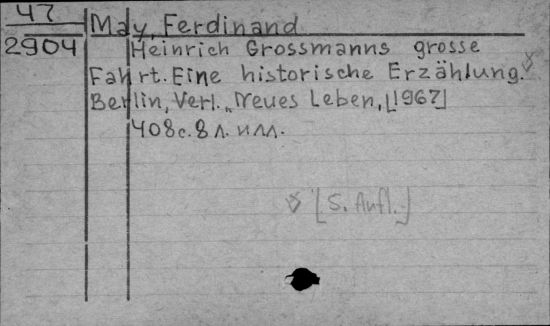 47
2904
May, Ferdinand
Heinrich Grossmanns grosse
Fahrt. Eine historische Erzählung.
Berlin, Verl. „Neues Leben, [1967]
408с. 8 л. илл.
[5. Aufl.]